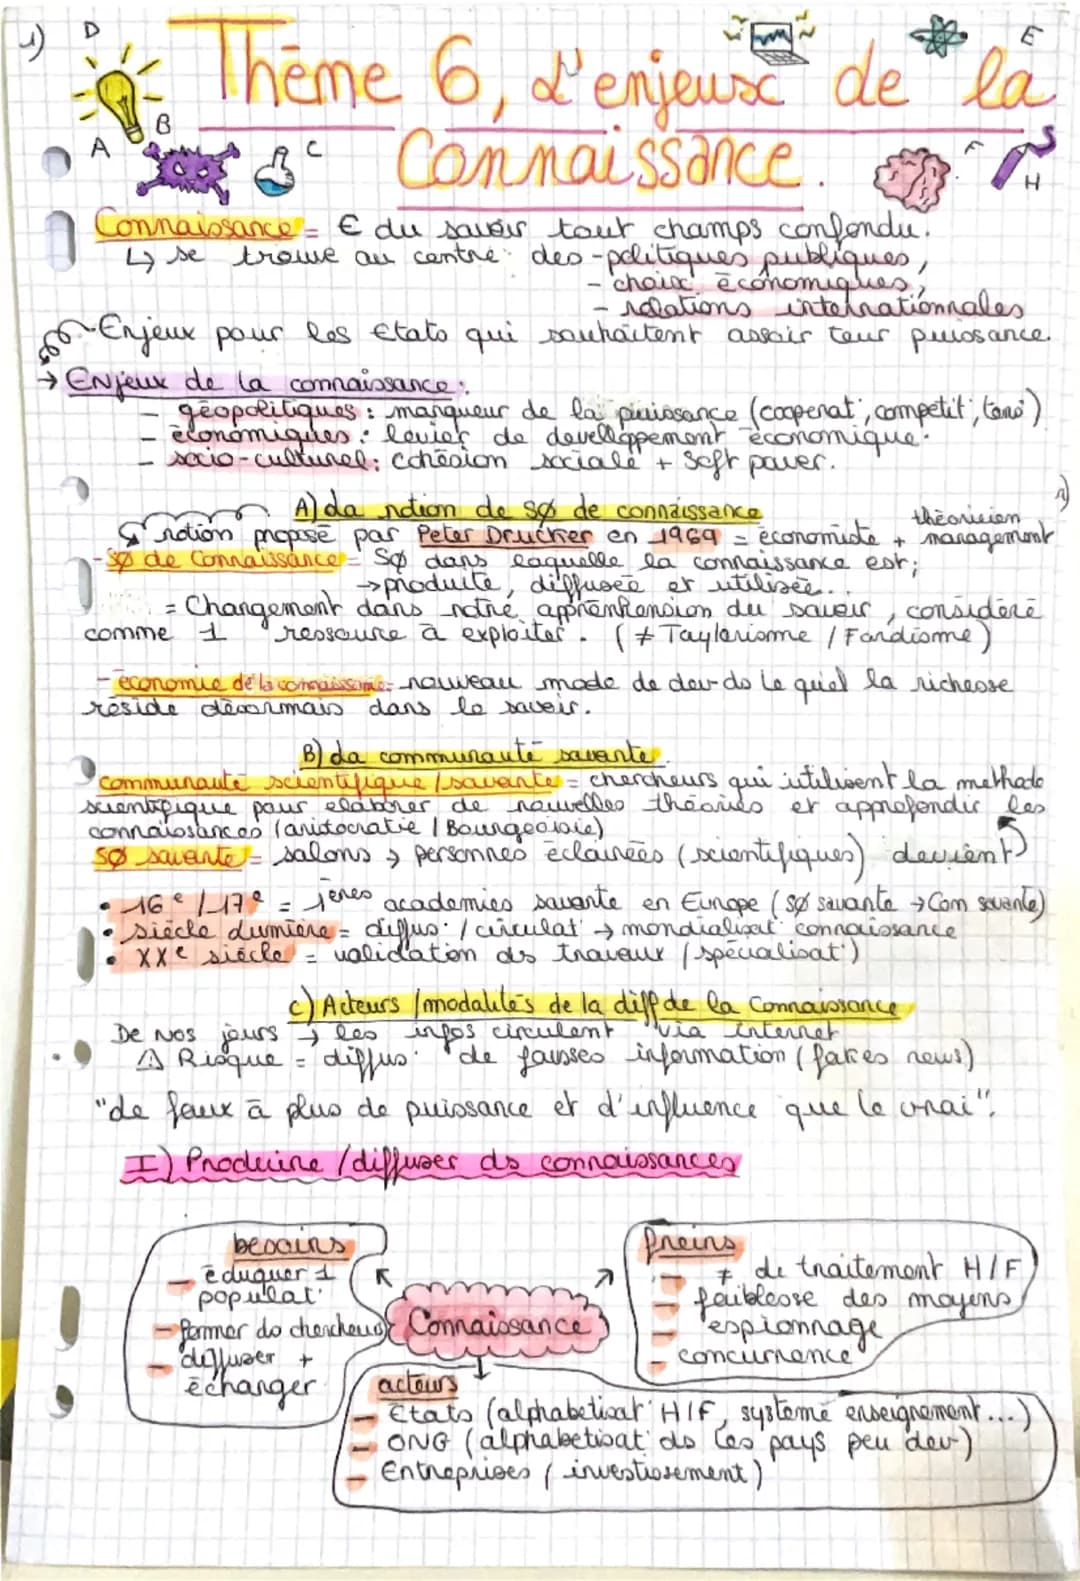 1)
D
E
Thème 6, L'enjeux de la
A
B
C
Connaissance.
F
H
Connaissance = € du savoir tout champs confondu.
↳ se trouve au centre des - politiques publiques,
- choix économiques,
- relations internationnales
Enjeux pour les Etats qui souhaitent assoir leur puissance.
→ Enjeux de la connaissance:
- géopolitiques: marqueur de la puissance (cooperat°, compétit°, tens°)
- économiques: levier de developpement économique.
- socio-culturel: cohésion sociale + Soft power.
A) La notion de sø de connaissance
notion proposé par Peter Drucker en 1969 = économiste + théoricien management
- sø de Connaissance = Sø dans laquelle la connaissance est;
→ produite, diffusée et utilisée..
= Changement dans notre appréhension du savoir, considéré
comme 1 ressource à exploiter. (≠ Taylorisme / Fordisme)
- économie de la connaissance = nouveau mode de dev ds le quel la richesse
réside désormais dans le savoir.
B) La communauté savante
communauté scientifique / savante = chercheurs qui utilisent la methode
scientifique pour elaborer de nouvelles théories et approfondir les
connaissances (aristocratie / Bourgeoisie)
sø savante = salons → personnes éclairées (scientifiques) devient
• 16e / 17e = 1ères academies savante en Europe (sø savante → Com savante)
• siècle Lumière = diffus° / circulat° → mondialisat° connaissance
• XXe siècle = validation ds travaux (spécialisat°)
C) Acteurs / modalités de la diff de la Connaissance
De nos jours → les infos circulent via internet
⚠ Risque = diffus° de fausses information (fakes news)
"de faux à plus de puissance et d'influence que le vrai".
I) Produire / diffuser ds connaissances
besoins
- éduquer 1
populat°
- former ds chercheurs
- diffuser +
échanger
Connaissance
freins
- ≠ de traitement H/F
- faiblesse des moyens
- espionnage
- concurrence
acteurs
- Etats (alphabetisat° H/F, système enseignement...)
- ONG (alphabetisat° ds les pays peu dev)
- Entreprises (investissement)